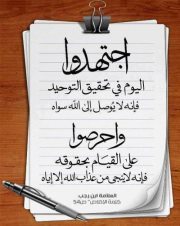 اجتهدوا
اليوم في تحقيق التوحيد
فإنه لا يوصل إلى الله سواه
واحرصوا
على القيام بحقوقه
فإنه لا ينجي من عذاب الله إلا إياه
العلامة ابن رجب
كلمة الإخلاص / ص54